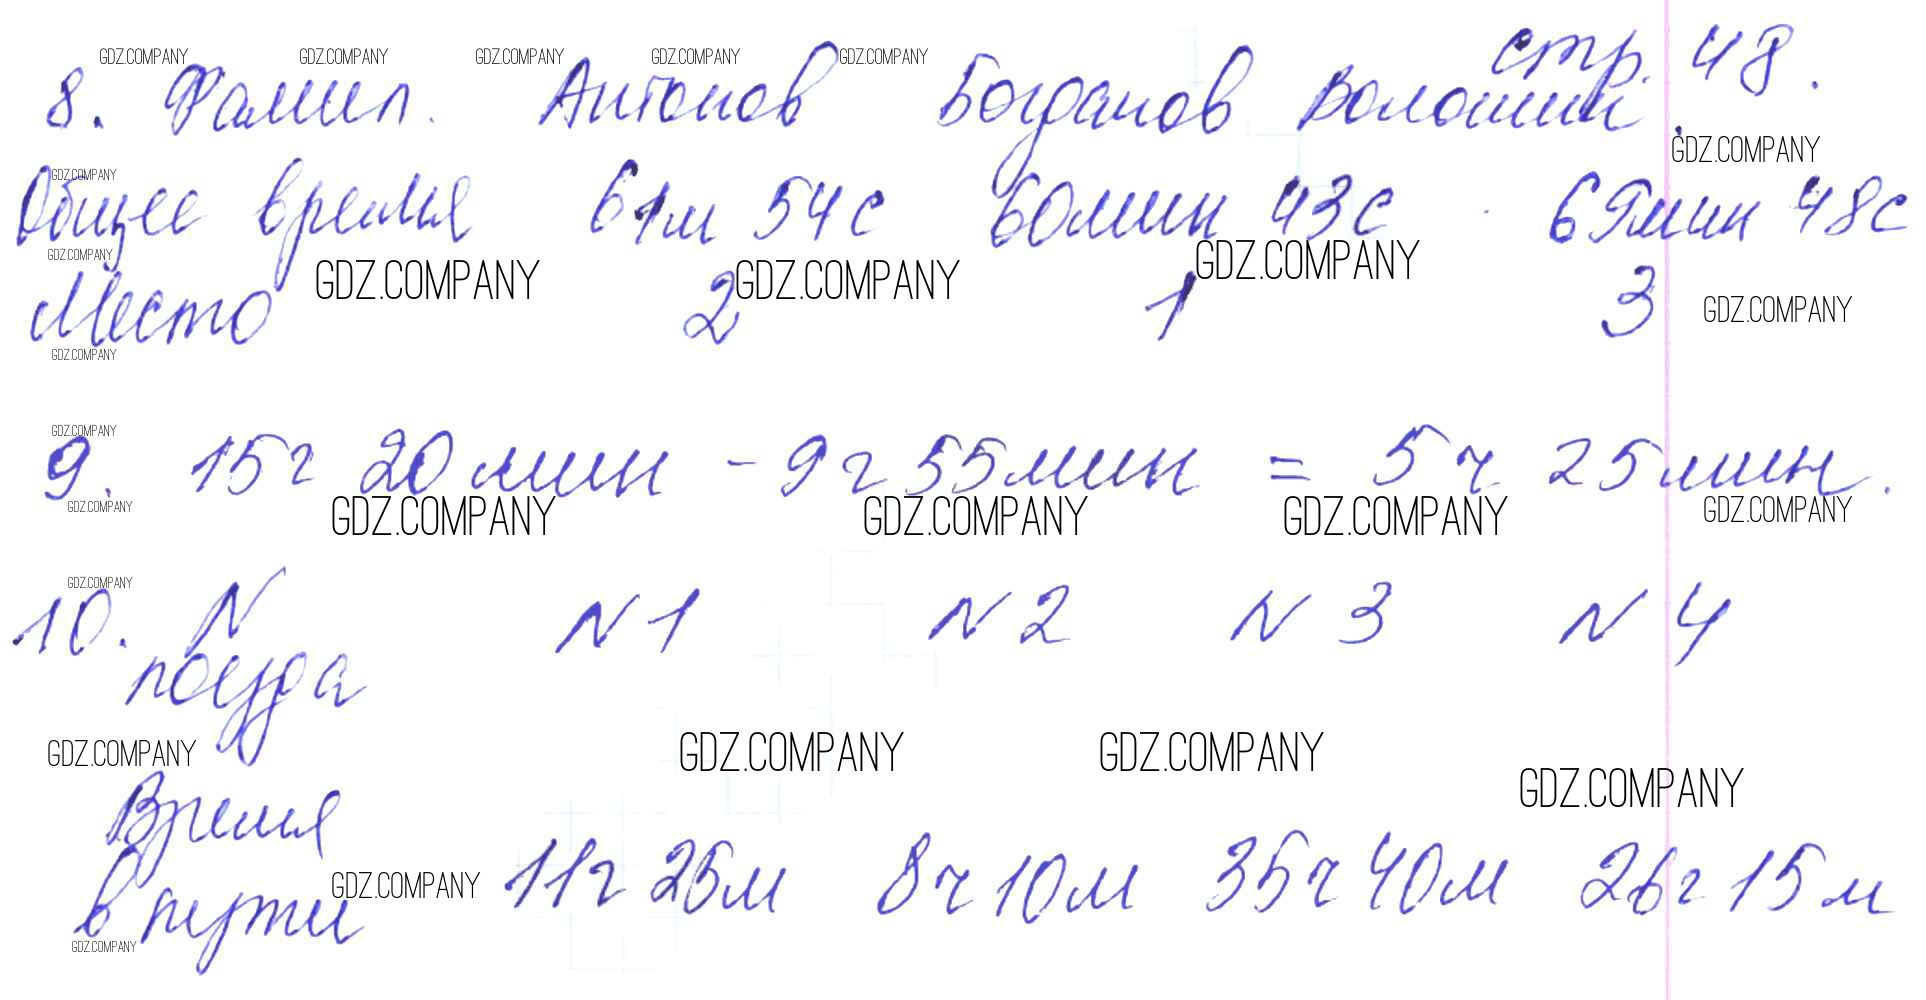 стр. 48.
GDZ.COMPANY GDZ.COMPANY GDZ.COMPANY GDZ.COMPANY GDZ.COMPANY
8. Фамил. Антонов Богданов Волошин.
GDZ.COMPANY
GDZ.COMPANY
Общее время 61м 54с 60мин 43с 69мин 48с
GDZ.COMPANY GDZ.COMPANY GDZ.COMPANY GDZ.COMPANY
Место 2 1 3 GDZ.COMPANY
GDZ.COMPANY
GDZ.COMPANY
9. 15ч 20мин - 9ч 55мин = 5ч 25мин.
GDZ.COMPANY GDZ.COMPANY GDZ.COMPANY GDZ.COMPANY GDZ.COMPANY
GDZ.COMPANY
10. N N1 N2 N3 N4
поезда
GDZ.COMPANY GDZ.COMPANY GDZ.COMPANY
GDZ.COMPANY
Время
в пути 11ч 25м 8ч 10м 35ч 40м 26ч 15м
GDZ.COMPANY
GDZ.COMPANY